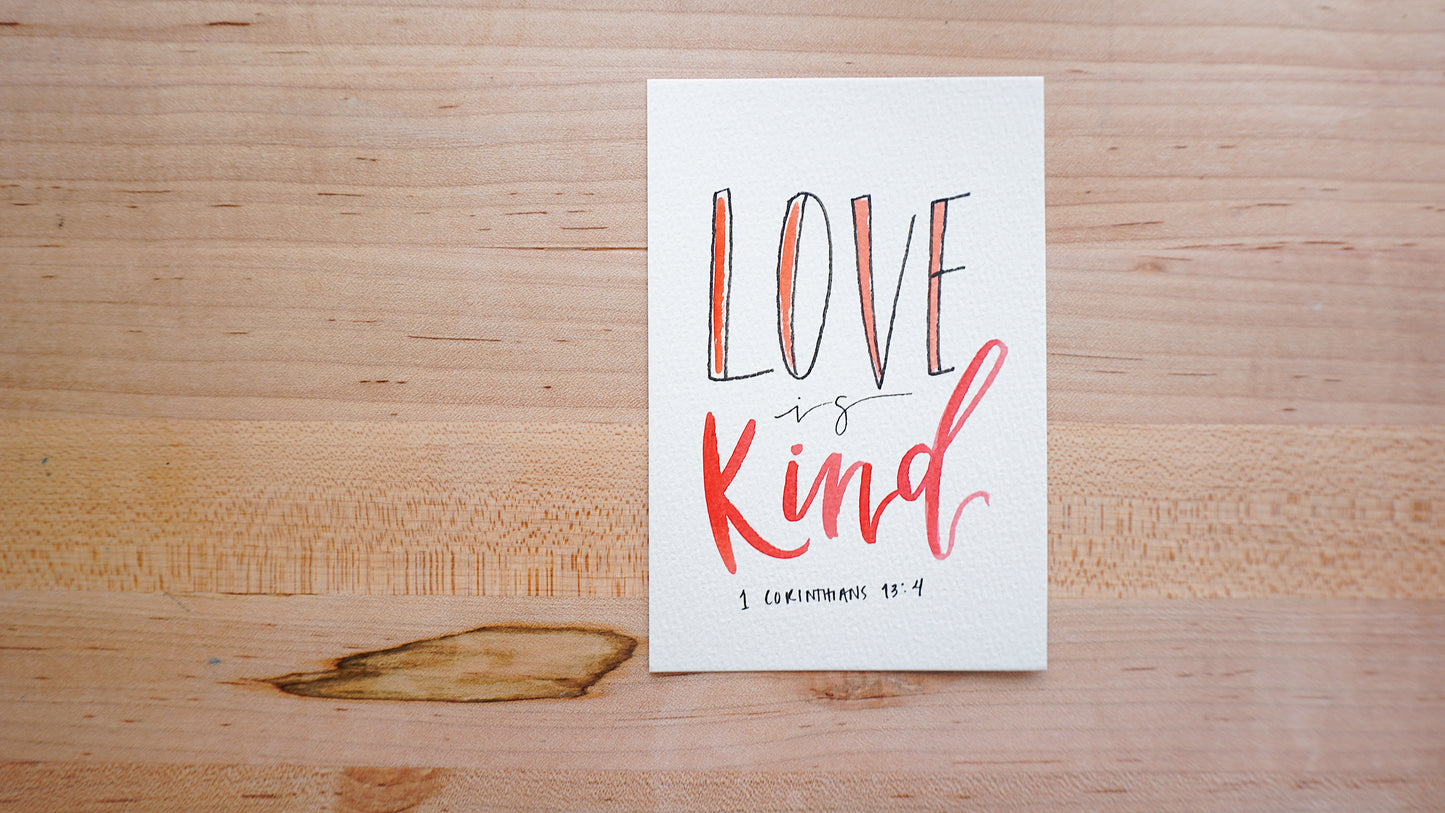 LOVE
is
Kind
1 CORINTHIANS 13:4